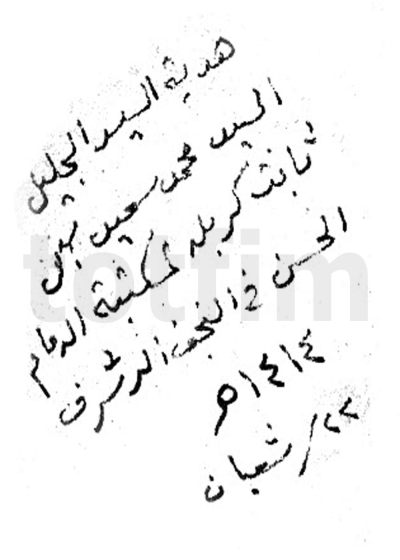 هدية السيد الجليل
السيد محمد سعيد
ثابت كربلاء لمكتبة الامام
الحسن في النجف الاشرف
١٤١٤هـ
٢٢/شعبان
totfim